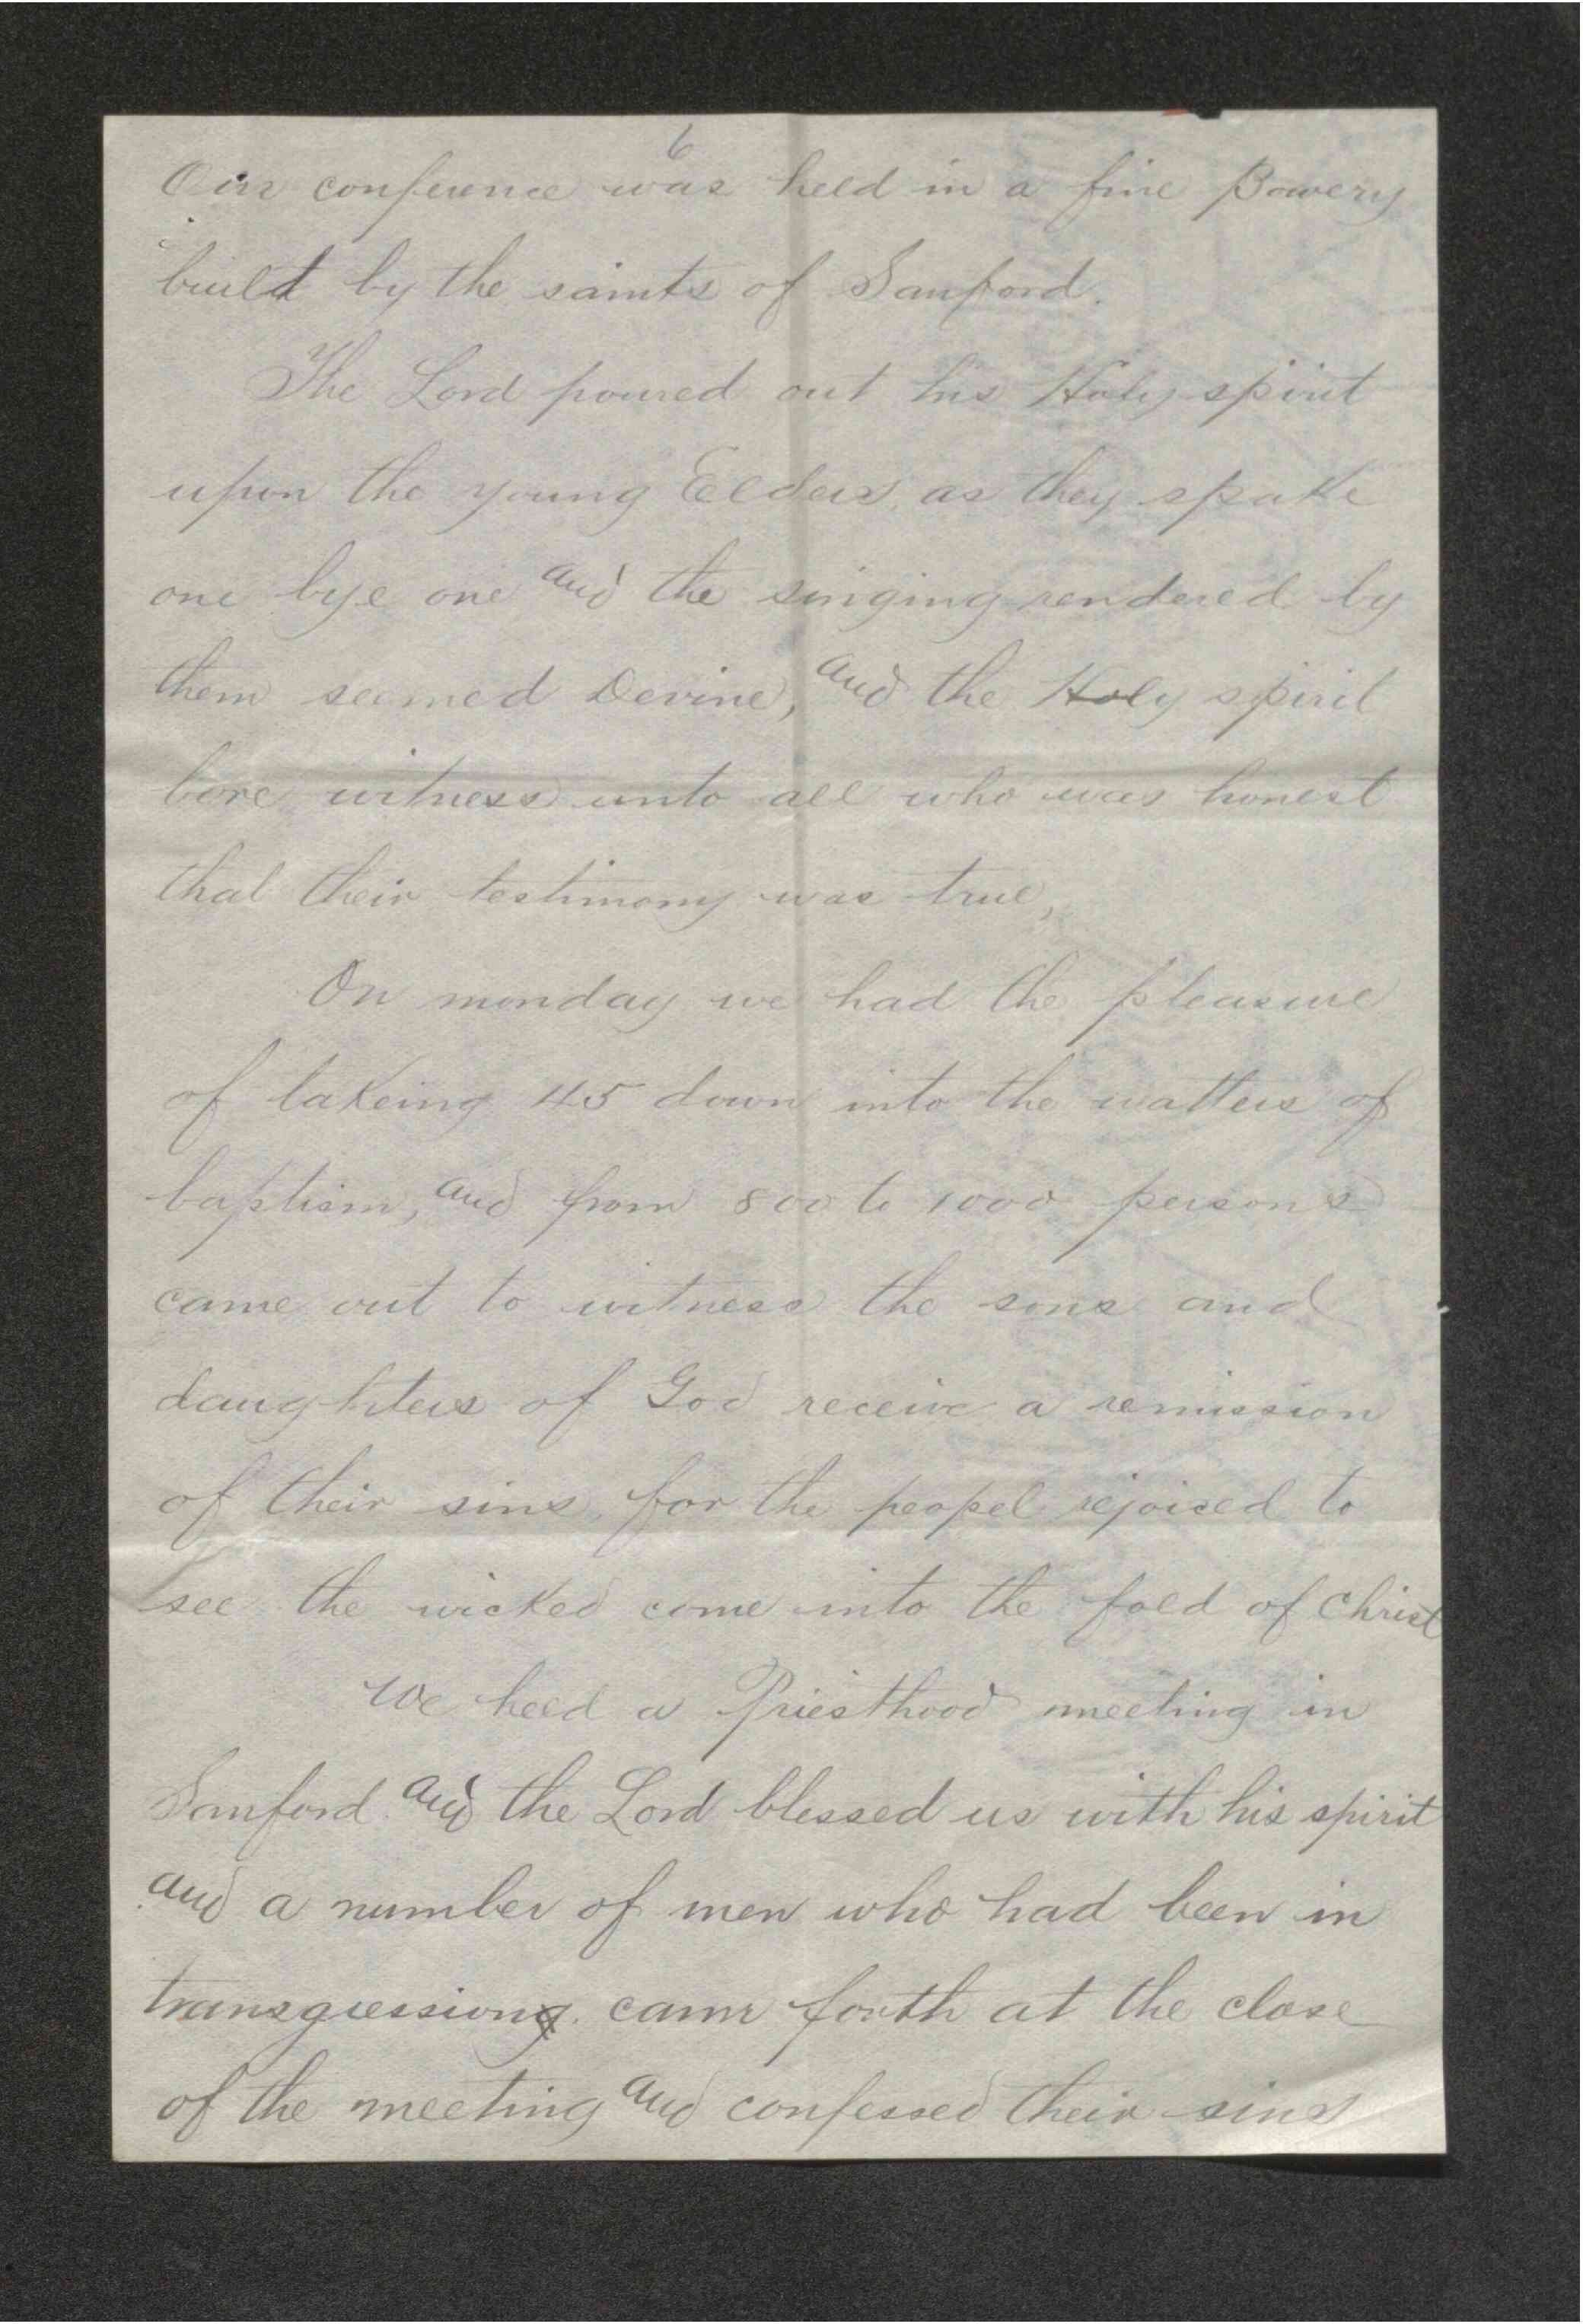 6
Our conference was held in a fine Bowery
built by the saints of Sanford.
The Lord poured out his Holy spirit
upon the young Elders, as they spake
one bye one and the singing rendered by
them seemed Devine, and the Holy spirit
bore witness unto all who was honest
that their testimony was true,
On monday we had the pleasure
of takeing 45 down into the watters of
baptism, and from 800 to 1000 persons
came out to witness the sons and
daughters of God receive a remission
of their sins, for the peopel rejoiced to
see the wicked come into the fold of Christ
We held a Priesthood meeting in
Sanford and the Lord blessed us with his spirit
and a number of men who had been in
transgression. came forth at the close
of the meeting and confessed their sins